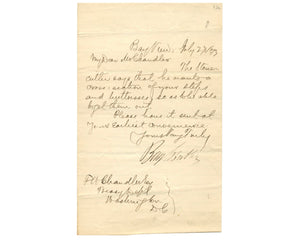 Bay View, July 27
My Dear Mr Chandler
The Stone
cutter says that he wants a
cross-section of your steps
and buttresses, so as to be able
to get them out.
Please have it sent at
your earliest convenience
Yours Very Truly
F W Chandler
Washington
D C